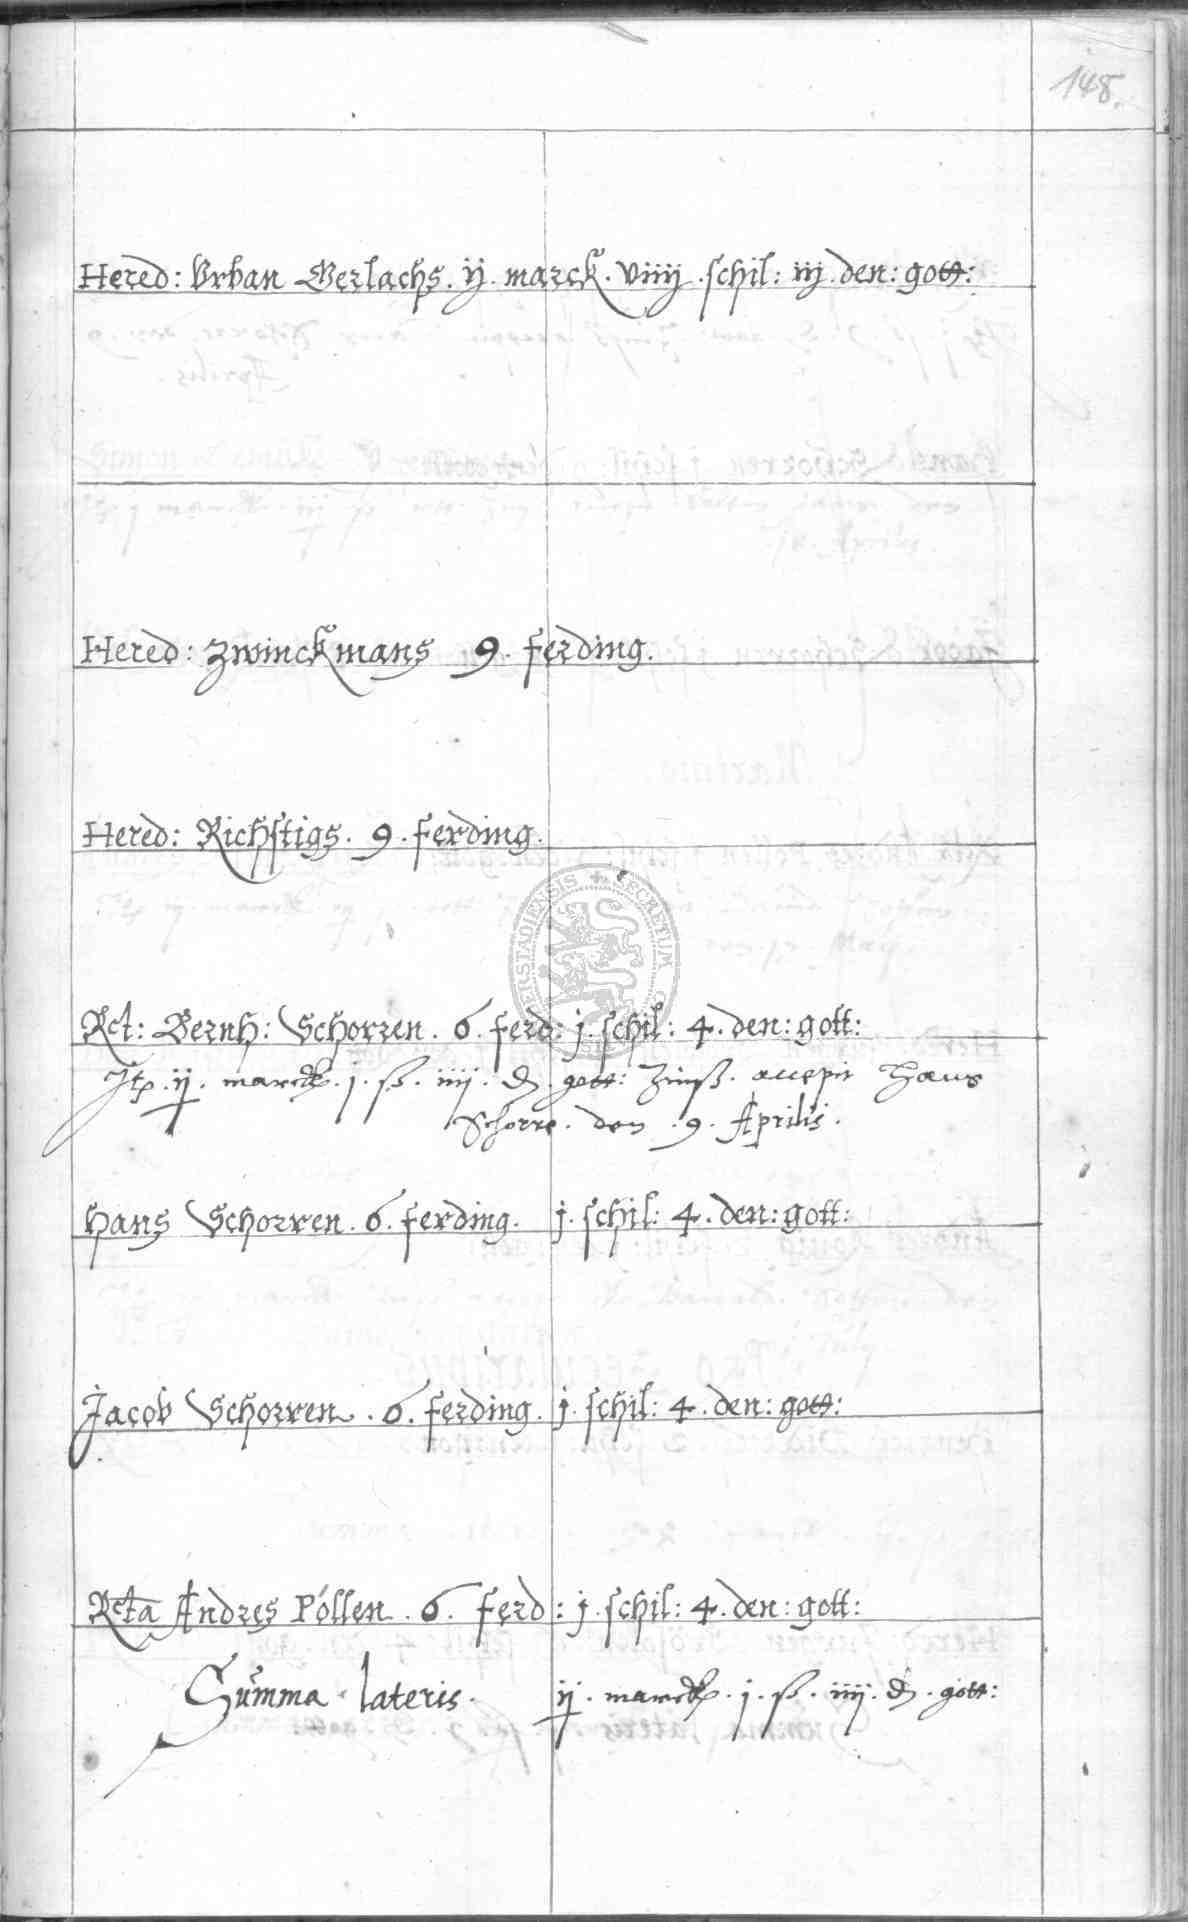 148.
Hered: Vrban Gerlachs. ij. marck. viiij. schil: iij. den: gott:
Hered: Zwinckmans 9. ferding.
Hered: Richstigs. 9. ferding.
ERSTADIENSIS SECRETUM
Rct: Bernh: Schorren. 6. ferd: j. schil: 4. den: gott:
Jtp. ij. marck. j. ß. iiij. d. gott: Zinß. accepit Hans
Schorre. den. 9. Aprilis.
Hans Schorren. 6. ferding. j. schil: 4. den: gott:
Jacob Schorren. 6. ferding. j. schil: 4. den: gott:
Rcta Andres Pöllen. 6. ferd: j. schil: 4. den: gott:
Summa lateris. ij. marck. j. ß. iiij. d. gott: